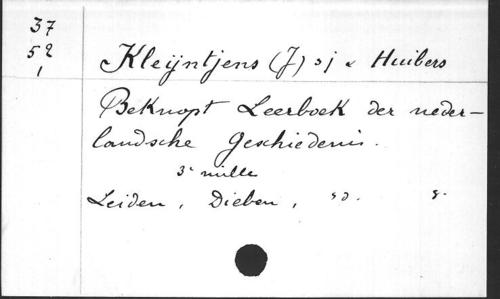 37
52
1
Kleijntjens (J) s j & Huibers
Beknopt Leerboek der neder-
landsche Geschiedenis.
3e mille
Leiden, Dieben, sd. 8.